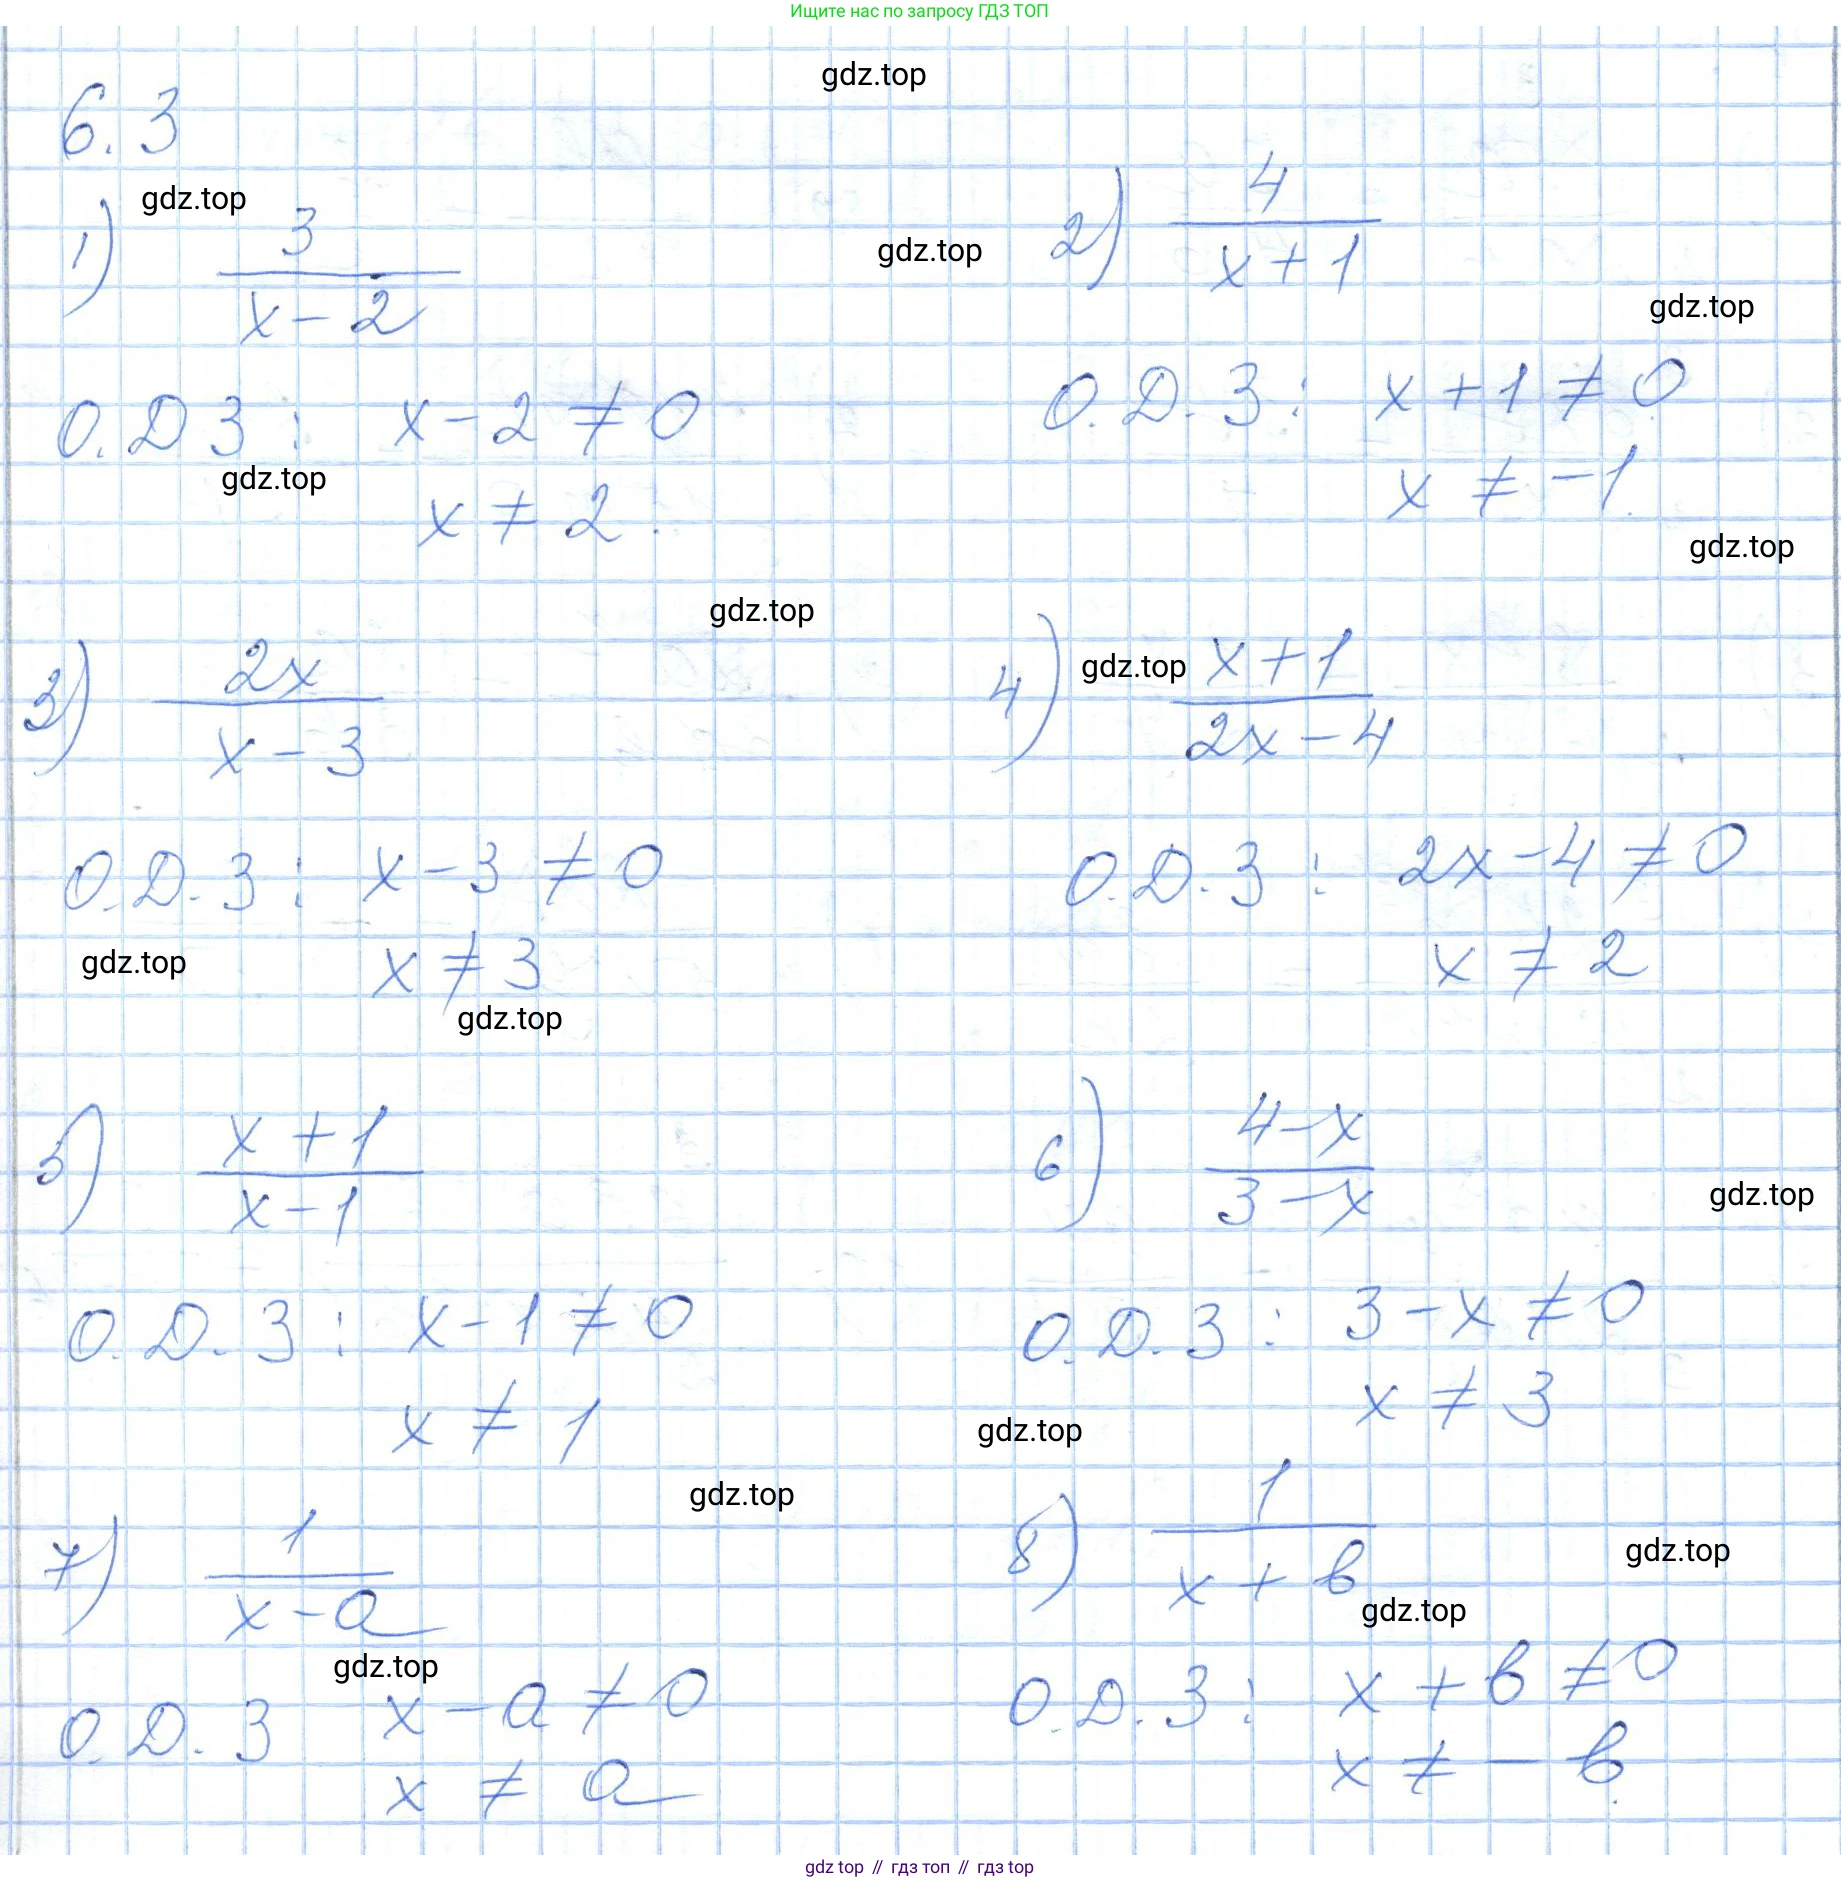 Ищите нас по запросу ГДЗ ТОП
gdz.top
6.3
gdz.top
1) 3 / (x - 2)
gdz.top
2) 4 / (x + 1)
gdz.top
О.Д З : x - 2 ≠ 0
gdz.top
x ≠ 2.
О.Д.З : x + 1 ≠ 0
x ≠ -1.
gdz.top
gdz.top
3) 2x / (x - 3)
4) gdz.top (x + 1) / (2x - 4)
О.Д.З : x - 3 ≠ 0
gdz.top
x ≠ 3
gdz.top
О.Д.З : 2x - 4 ≠ 0
x ≠ 2
5) (x + 1) / (x - 1)
6) (4 - x) / (3 - x)
gdz.top
О.Д.З : x - 1 ≠ 0
x ≠ 1
О.Д.З : 3 - x ≠ 0
x ≠ 3
gdz.top
gdz.top
7) 1 / (x - a)
8) 1 / (x + в)
gdz.top
gdz.top
gdz.top
О.Д.З x - a ≠ 0
x ≠ a
О.Д.З : x + в ≠ 0
x ≠ - в.
gdz top // гдз топ // гдз top